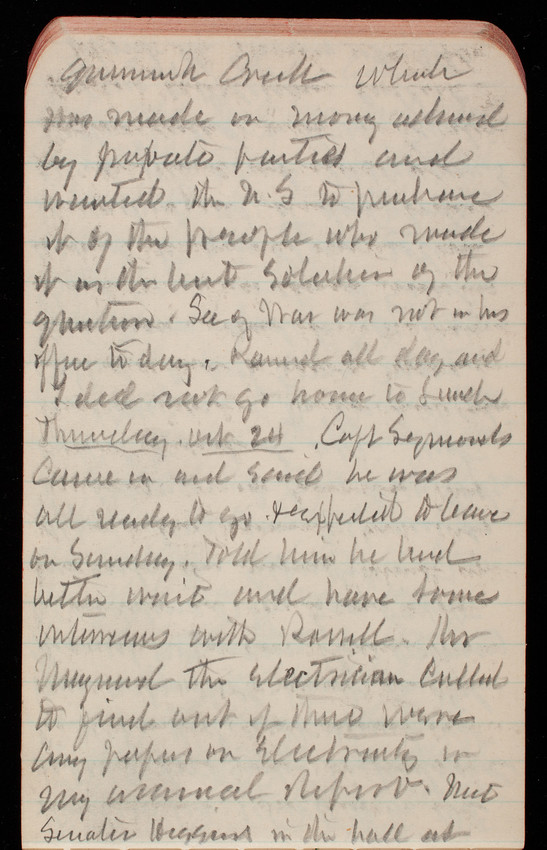 Creek which
was made on money advanced
by private parties and
wanted the U.S to purchase
it of the people who made
it as the best solution of the
question. Sec of War was not in his
office to day. Rained all day and
I did not go home to Lunch
Thursday. Oct 24. Capt Symonds
Came in and said he was
all ready to go & expected to leave
on Sunday. Told him he had
better wait and have some
interviews with Mr
Maynard the Electrician Called
to find out if there were
any papers on Electricity in
my annual Report. Met
Senator Higgins in the hall at